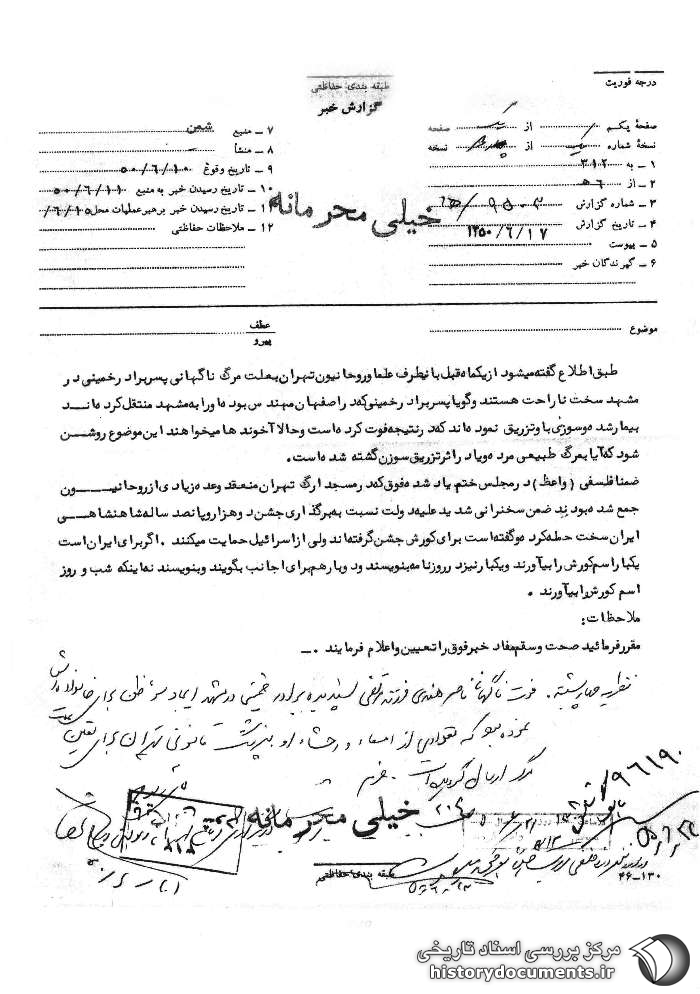 درجه فوریت
طبقه بندی حفاظتی
گزارش خبر
صفحهٔ یکم از صفحه
نسخهٔ شماره یک از نسخه
۱ ـ به ۳۱۲
۲ ـ از ۵۶
۳ ـ شماره گزارش
۴ ـ تاریخ گزارش ۱۳۵۰/۶/۱۷
۵ ـ پیوست
۶ ـ گیرندگان خبر
۷ ـ منبع
۸ ـ منشأ
۹ ـ تاریخ وقوع ۵۰/۶/۱۰
۱۰ ـ تاریخ رسیدن خبر به منبع ۵۰/۶/۱۱
۱۱ ـ تاریخ رسیدن خبر برهبر عملیات محل ۶/۱۵/
۱۲ ـ ملاحظات حفاظتی
خیلی محرمانه
موضوع
عطف
پیرو
طبق اطلاع گفته میشود از یکماه قبل باینطرف علما و روحانیون تهران بعلت مرگ ناگهانی پسر برادر خمینی در
مشهد سخت ناراحت هستند و گویا پسر برادر خمینی که در اصفهان مهندس بوده او را به مشهد منتقل کرده اند
بیمار شده و سوزنی باو تزریق نموده اند که در نتیجه فوت کرده است و حالا آخوند ها میخواهند این موضوع روشن
شود که آیا بمرگ طبیعی مرده و یا در اثر تزریق سوزن کشته شده است.
ضمنا فلسفی (واعظ) در مجلس ختم یاد شده فوق که در مسجد ارک تهران منعقد و عده زیادی از روحانیون
جمع شده بودند ضمن سخنرانی شدید علیه دولت نسبت به برگذاری جشن دو هزار و پانصد ساله شاهنشاهی
ایران سخت حمله کرده و گفته است برای کورش جشن گرفته اند ولی از اسرائیل حمایت میکنند . اگر برای ایران است
یکبار اسم کورش را بیآورند و یکبار نیز در روزنامه بنویسند و دو بار هم برای اجانب بگویند و بنویسند نه اینکه شب و روز
اسم کورش را بیآورند .
ملاحظات:
مقرر فرمائید صحت و سقم مفاد خبر فوق را تعیین و اعلام فرمایند .ـ
نظریه چهارشنبه . فوت ناگهانی ناصر هندی فرزند مرتضی پسندیده برادر خمینی در مشهد ایجاد سوء ظن برای خانواده اش
نموده بود که تعدادی از امعاء و احشاء او به پزشک قانونی تهران برای تعیین علت
مرگ ارسال گردیده است .
۹۶۱۹۰
خیلی محرمانه
طبقه بندی حفاظتی
۴۶-۱۳۰
مرکز بررسی اسناد تاریخی
historydocuments.ir